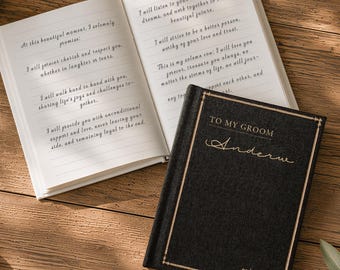 At this beautiful moment, I solemnly
promise:
I will forever cherish and respect you,
whether in laughter or tears.
I will walk hand in hand with you,
sharing life's joys and challenges to-
gether.
I will provide you with unconditional
support and love, never leaving your
side, and remaining loyal to the end.
I will listen to your
dreams, and work together to
I will strive to be a better person,
worthy of your love and trust.
This is my solemn vow: I will love you
forever, treasure you always, no
matter the storms of life, we will jour-
ney
TO MY GROOM
Anderw